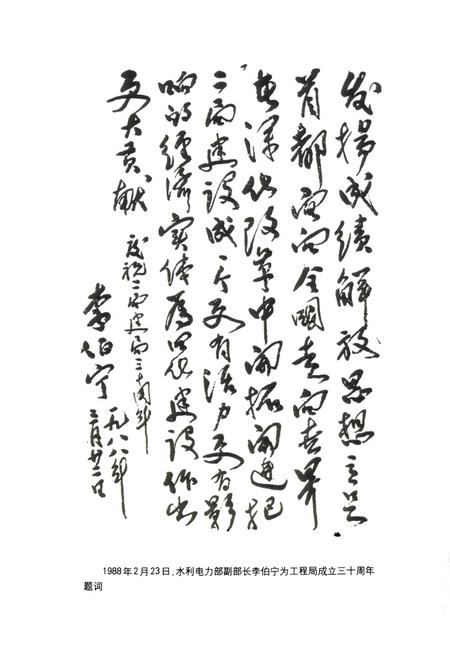 发扬成绩解放思想立足
首都面向全国走向世界
在深化改革中开拓前进把
二局建设成一个更有活力更有影
响的经济实体为四化建设作出
更大贡献
庆祝二局建局三十周年
李伯宁
一九八八年
二月廿三日
1988年2月23日,水利电力部副部长李伯宁为工程局成立三十周年
题词